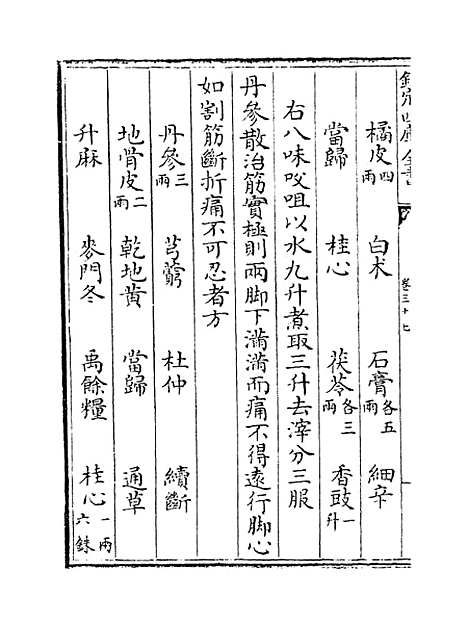 欽定四庫全書
卷三十七
橘皮四兩 白术 石膏各五兩 細辛
當歸 桂心 茯苓各三兩 香豉一升
右八味㕮咀以水九升煮取三升去滓分三服
丹參散治筋實極則兩脚下滿滿而痛不得遠行脚心
如割筋斷折痛不可忍者方
丹參三兩 芎藭 杜仲 續斷
地骨皮二兩 乾地黄 當歸 通草
升麻 麥門冬 禹餘糧 桂心一兩六銖